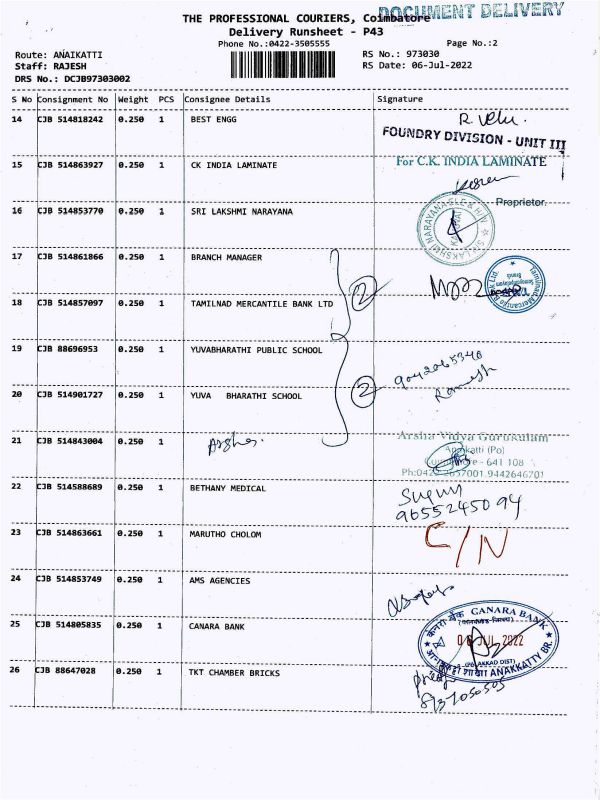 DOCUMENT DELIVERY
THE PROFESSIONAL COURIERS, Coimbatore
Delivery Runsheet - P43
Phone No.:0422-3505555
Page No.:2
Route: ANAIKATTI
RS No.: 973030
Staff: RAJESH
RS Date: 06-Jul-2022
DRS No.: DCJB97303002
S No Consignment No Weight PCS Consignee Details Signature
14 CJB 514818242 0.250 1 BEST ENGG
R. Velu.
FOUNDRY DIVISION - UNIT III
15 CJB 514863927 0.250 1 CK INDIA LAMINATE
For C.K. INDIA LAMINATE
Proprietor.
16 CJB 514853770 0.250 1 SRI LAKSHMI NARAYANA
17 CJB 514861866 0.250 1 BRANCH MANAGER
2
18 CJB 514857097 0.250 1 TAMILNAD MERCANTILE BANK LTD
Tamilnad Mercantile Bank Ltd.
19 CJB 88696953 0.250 1 YUVABHARATHI PUBLIC SCHOOL
2
9042065340
Ramesh
20 CJB 514901727 0.250 1 YUVA BHARATHI SCHOOL
21 CJB 514843004 0.250 1 Arsha.
Arsha Vidya Gurukulam
Anaikatti (Po)
Coimbatore - 641 108
Ph:0422-2657001.9442646701
22 CJB 514588689 0.250 1 BETHANY MEDICAL
9655245094
23 CJB 514863661 0.250 1 MARUTHO CHOLOM
C/N
24 CJB 514853749 0.250 1 AMS AGENCIES
25 CJB 514805835 0.250 1 CANARA BANK
केनरा बैंक CANARA BANK
06 JUL 2022
(PALAKKAD DIST)
ANAKKATTY BR.
26 CJB 88647028 0.250 1 TKT CHAMBER BRICKS